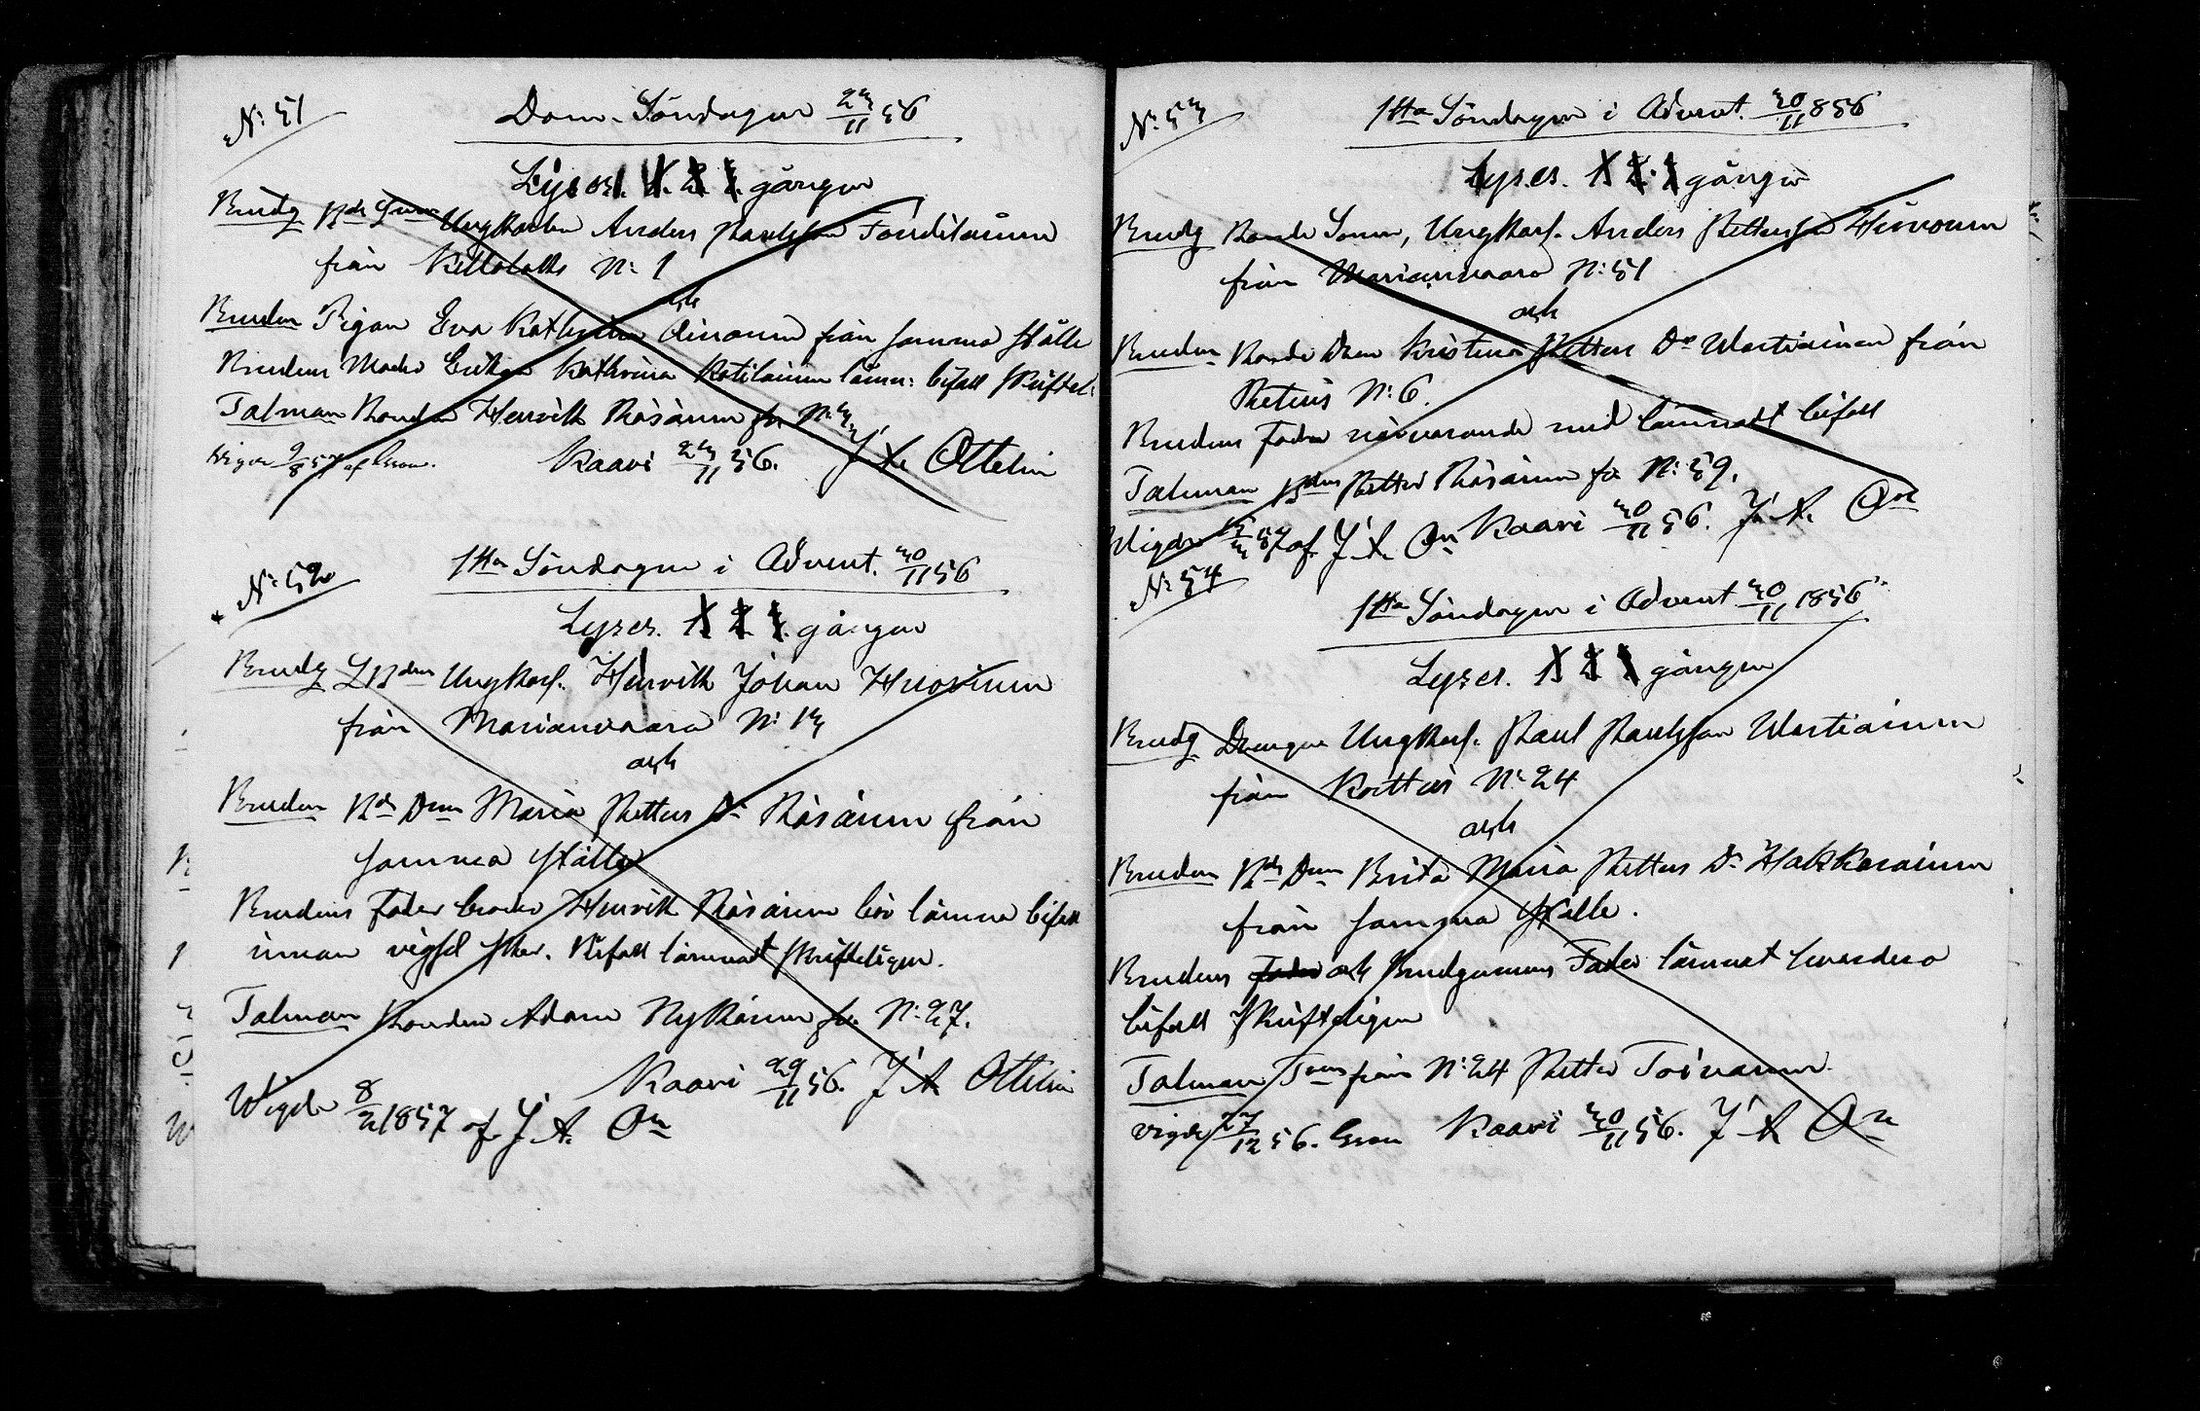 N: 51
Dom. Söndagen 23/11 56
Lyses 1. 2. 3. gången
Brudg Bde Sonen Ungkarlen Anders Paulsson Tanditainen
från Kettolaks N: 1
och
Bruden Pigan Eva Kathrina från samma ställe
Brudens Moder Enkan Kathrina Kotilainen lämn: bifall skriftel:
Talman Bonden Henrik Räsänen fr. N: 3
Wigde 9/8 57 af
Kaavi 23/11 56. J. A. Ottelin
N: 52
1sta Söndagen i Advent. 30/11 56
Lyses. 1 2 3. gången
Brudg LBden Ungkarl. Henrik Johan Huovinen
från Marianvaara N: 13
och
Bruden Bde Dren Maria Petters Dr Räsänen från
samma ställe
Brudens Fader broder Henrik Räsänen bör lämna bifall
innan vigsel sker. Bifall lämnat skriftligen.
Talman Bonden Adam Nykänen fr. N: 27.
Kaavi 29/11 56. J A Ottelin
Wigde 8/2 1857 af J. A. On
N: 53
1sta Söndagen i Advent. 30/11 856
Lyses. 1 2. 3 gången
Brudg Bonde Sonen, Ungkarl. Anders Pettersson Hirvonen
från Marianvaara N: 51
och
Bruden Bonde Dren Kristina Petters Dr Wartiainen från
N: 6.
Brudens Fader närvarande med lämnadt bifall
Talman Bden Petter Räsänen fr N: 59.
Kaavi 30/11 56. J. A. On
Wigde 57 af J. A. On
N: 54
1sta Söndagen i Advent 30/11 1856
Lyses. 1 2 3 gången
Brudg Drengen Ungkarl. Paul Paulsson Wartiainen
från Kortteis N: 24
och
Bruden Bde Dren Brita Maria Petters Dr Hakkarainen
från samma ställe.
Brudens Fader och Brudgummens Fader lämnat hvardera
bifall skriftligen
Talman från N: 24 Petter Toivanen.
vigde 27/12 56. Kaavi 30/11 56. J A On